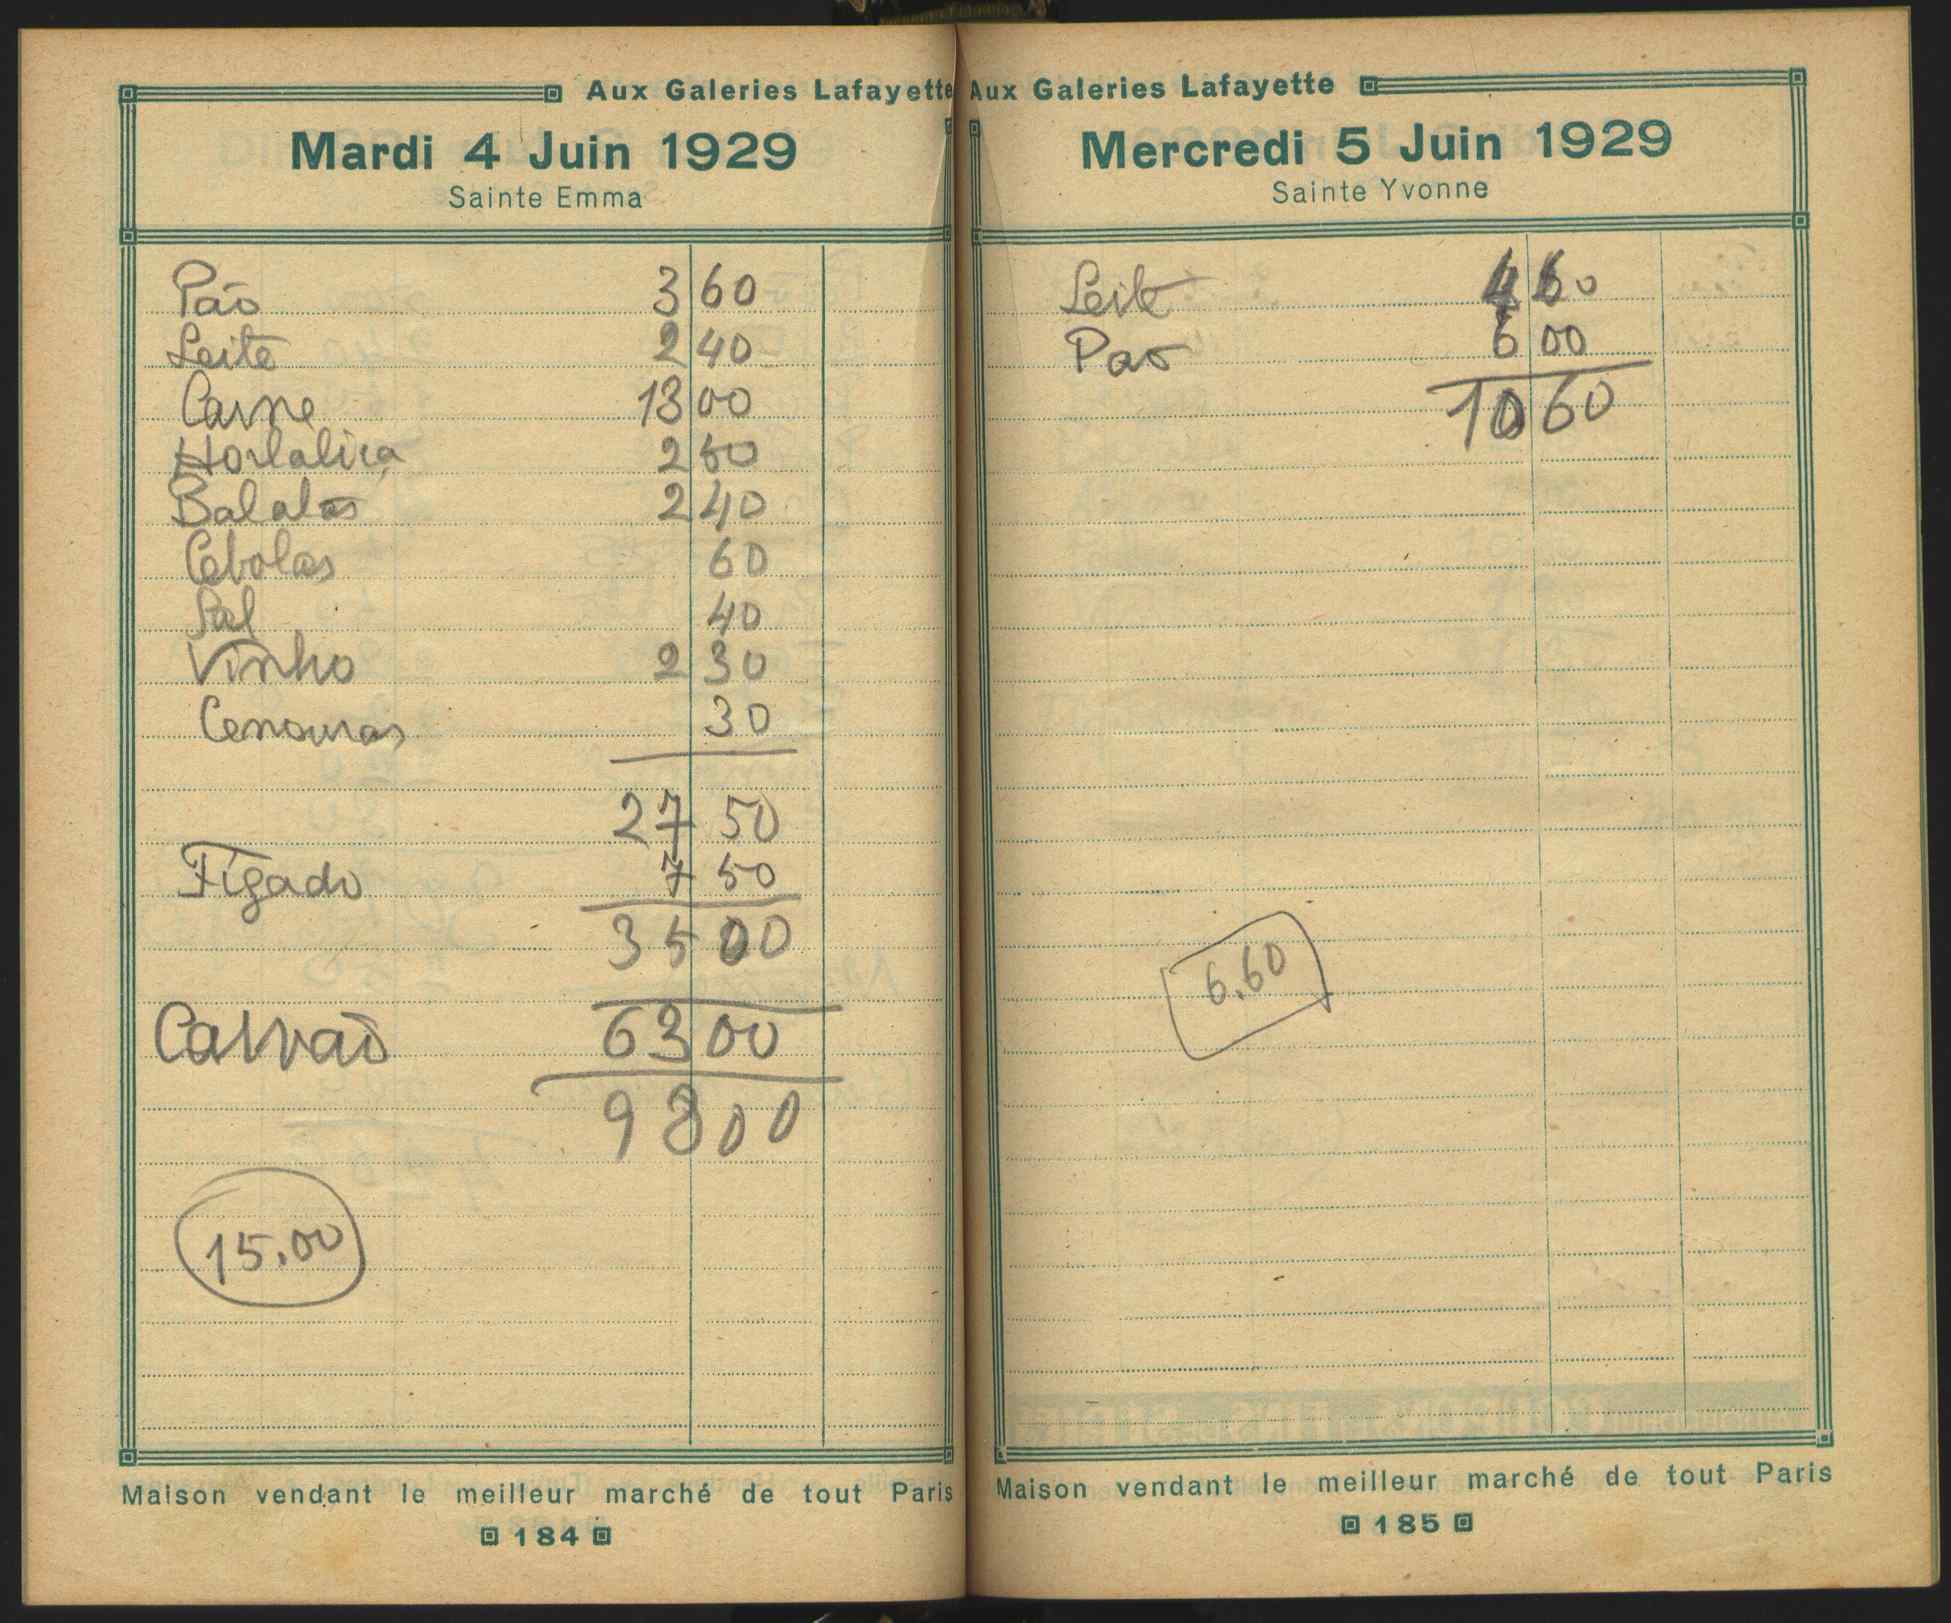 Aux Galeries Lafayette
Mardi 4 Juin 1929
Sainte Emma
Pão 3 60
Leite 2 40
Carne 13 00
Hortaliça 2 50
Batatas 2 40
Cebolas 60
Sal 40
Vinho 2 30
Cenouras 30
27 50
Fígado 7 50
35 00
Carvão 63 00
98 00
15.00
Maison vendant le meilleur marché de tout Paris
184
Aux Galeries Lafayette
Mercredi 5 Juin 1929
Sainte Yvonne
Leite 4 60
Pao 6 00
10 60
6.60
Maison vendant le meilleur marché de tout Paris
185